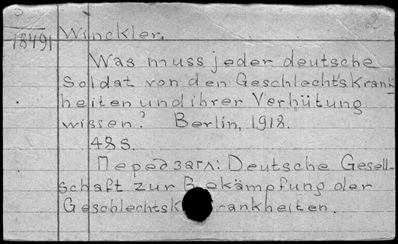 18491 Winckler.
Was muss jeder deutsche
Soldat von den Geschlechtskrank-
heiten und ihrer Verhütung
wissen? Berlin, 1918.
48s.
Передзагл: Deutsche Gesell-
schaft zur Bekämpfung der
Geschlechtsk rankheiten.